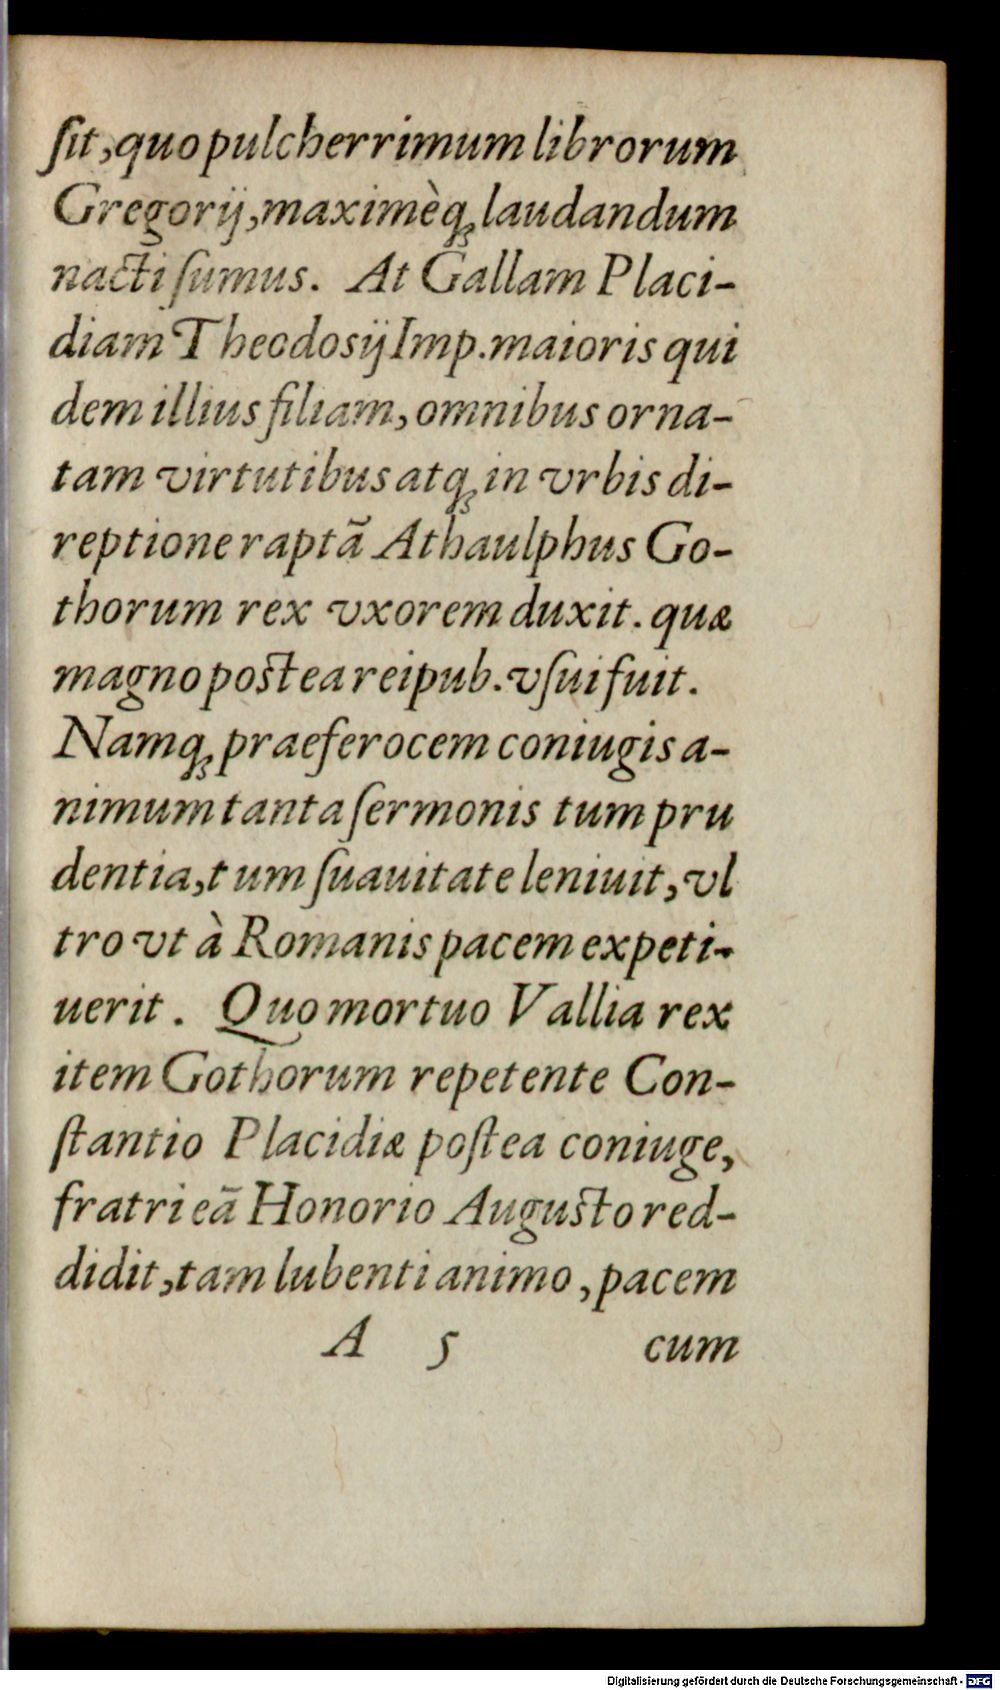 ſit, quo pulcherrimum librorum
Gregorij, maximèq́ꝫ laudandum
nacti ſumus. At Gallam Placi-
diam Theodosij Imp. maioris qui
dem illius filiam, omnibus orna-
tam virtutibus atqꝫ in vrbis di-
reptione raptã Athaulphus Go-
thorum rex vxorem duxit. quæ
magno postea reipub. vſui fuit.
Namqꝫ praeferocem coniugis a-
nimum tanta ſermonis tum pru
dentia, tum ſuauitate leniuit, vl
tro vt à Romanis pacem expeti-
uerit. Quo mortuo Vallia rex
item Gothorum repetente Con-
ſtantio Placidiæ poſtea coniuge,
fratri eã Honorio Augusto red-
didit, tam lubenti animo, pacem
A 5 cum
Digitalisierung gefördert durch die Deutsche Forschungsgemeinschaft - DFG